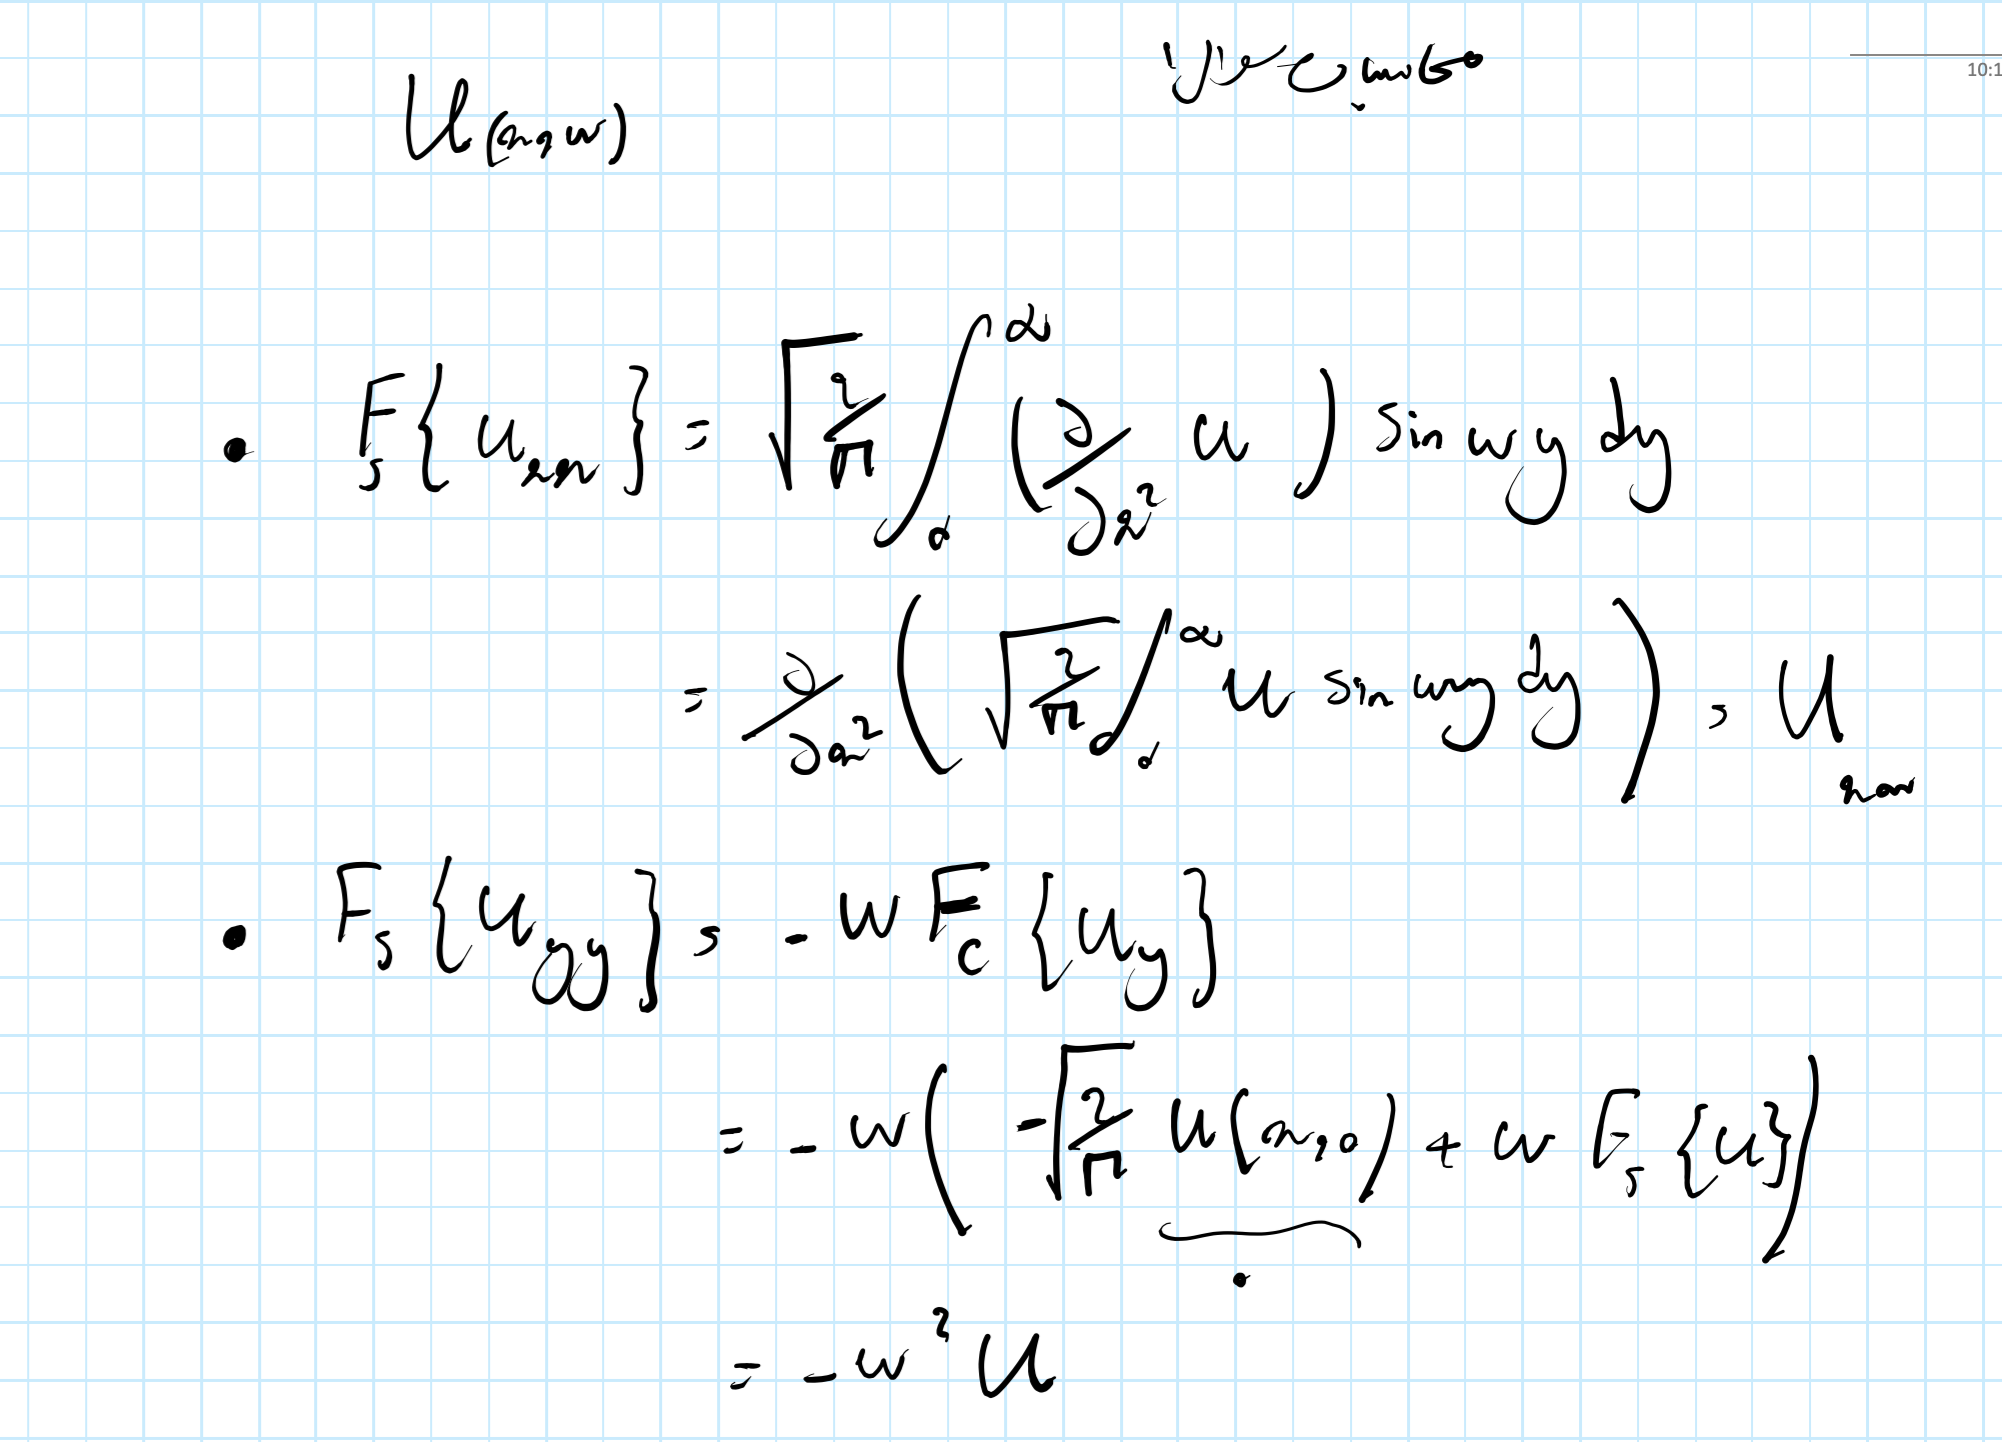 10:1
U(x, w)
• F_s{u_xx} = √(2/π) ∫_0^∞ (∂/∂x² u) sin wy dy
= ∂/∂x² (√(2/π) ∫_0^∞ u sin wy dy) = U_xx
• F_s{u_yy} = -w F_c{u_y}
= -w(-√(2/π) u(x,0) + w F_s{u})
= -w² U